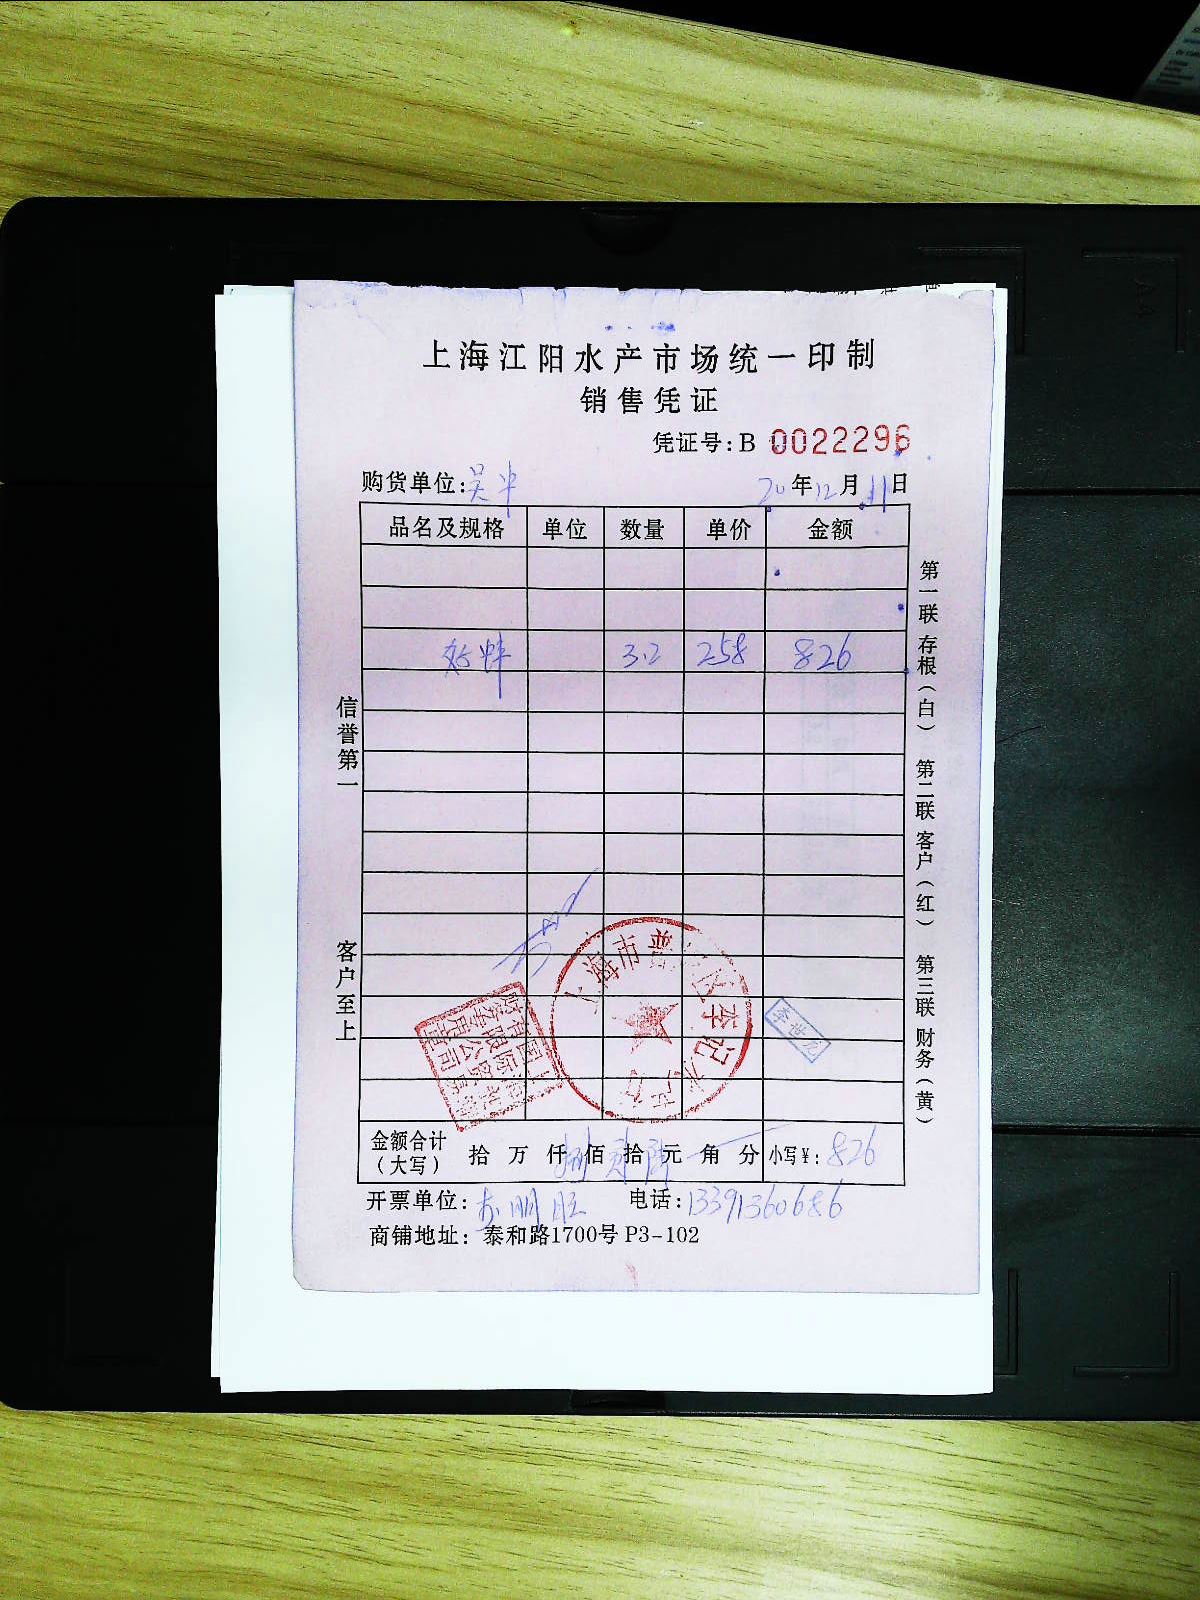 上海江阳水产市场统一印制
销售凭证
凭证号:B 0022296
购货单位:吴
20年12月11日
品名及规格 单位 数量 单价 金额
3.2 258 826
信誉第一
客户至上
第一联 存根(白) 第二联 客户(红) 第三联 财务(黄)
李世龙
金额合计(大写) 拾万仟捌佰贰拾陆元角分 小写¥:826
开票单位: 电话:13391360686
商铺地址: 泰和路1700号P3-102